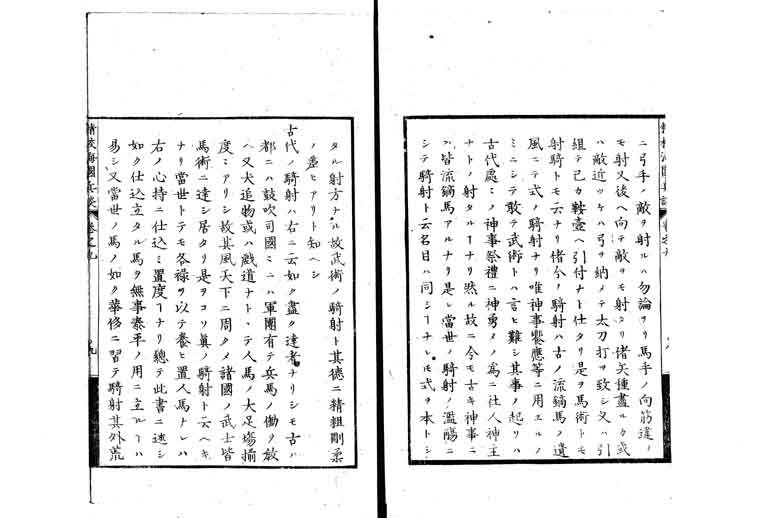 ニ弓手ノ敵ヲ射ルハ勿論ヲリ馬手ノ向筋違ノ
モ射又後ヘ向テ敵ヲモ射タリ偖矢種盡ルカ或
ハ敵近ツケハ弓ヲ納メテ太刀打ヲ致シ又ハ引
組テ己カ鞍壷ヘ引付ナト仕タリ是ヲ馬術トモ
射騎トモ云ナリ偖今ノ騎射ハ古ノ流鏑馬ノ遺
風ニテ式ノ騎射ナリ唯神事饗應等ニ用エルノ
ミニシテ敢テ武術トハ言ヒ難シ其事ノ起リハ
古代處ミノ神事祭禮ニ神勇メノ為ニ社人神主
ナトノ射タルヿナリ然ル故ニ今モ古キ神事ニ
ハ皆流鏑馬アルナリ是レ當世ノ騎射ノ濫觴ニ
シテ騎射ト云名目ハ同シヿナレトモ式ヲ本トシ
精校海國兵談 卷之九
タル射方ナル故武術ノ騎射ト其德ニ精粗剛柔
ノ差ヒアリト知ヘシ
古代ノ騎射ハ右ニ云如ク盡ク達者ナリシモ古ハ
都ニハ鼓吹司國ミニハ軍團有テ兵馬ノ働ヲ放
ヘ又犬追物或ハ戲道ナト丶テ人馬ノ大足塲揃
度ミアリシ故其風天下ニ周ク〆諸國ノ武士皆
馬術ニ達シ居タリ是ヲコソ眞ノ騎射ト云ヘキ
ナリ當世トテモ各祿ヲ以テ養ヒ置人馬ナレハ
右ノ心持ニ仕込ミ置度ヿナリ總テ此書ニ述シ
如ク仕込立タル馬ヲ無事泰平ノ用ニ立ルヿハ
易シ又當世ノ馬ノ如ク華修ニ習テ騎射其外荒